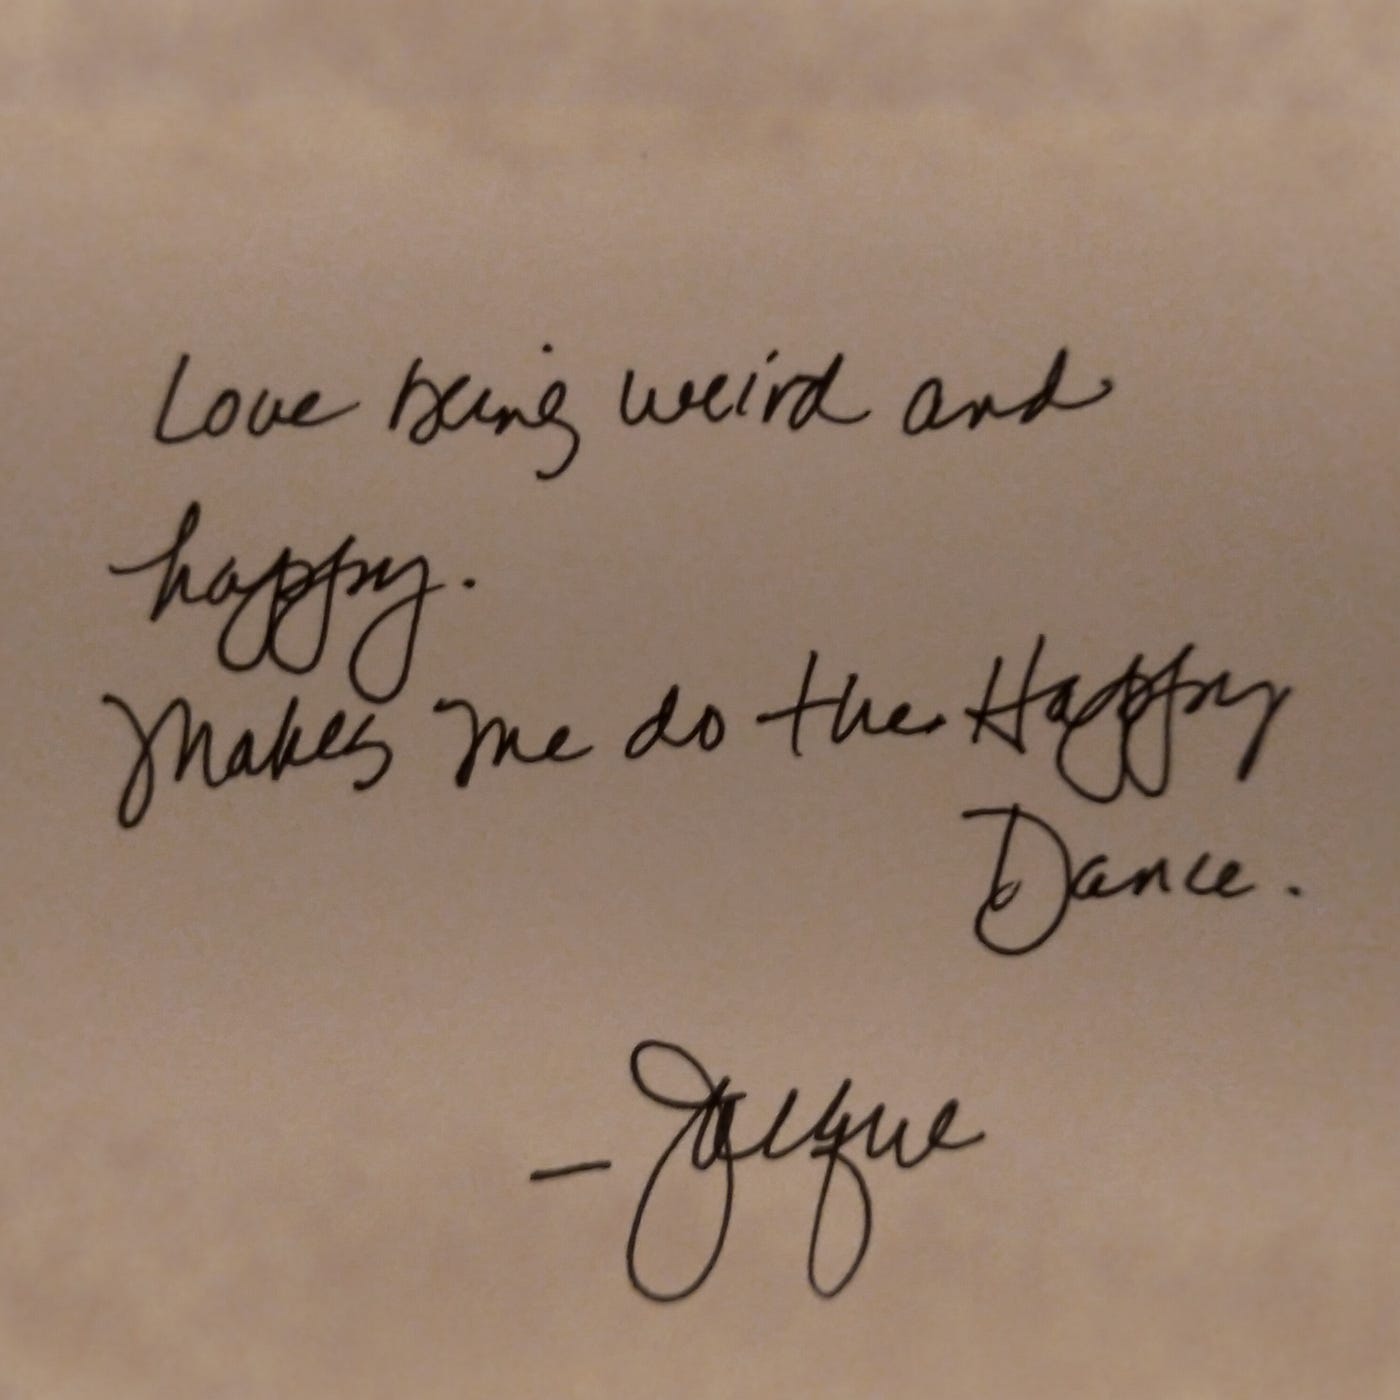 Love being weird and
happy.
Makes me do the Happy
Dance.
— Jacque